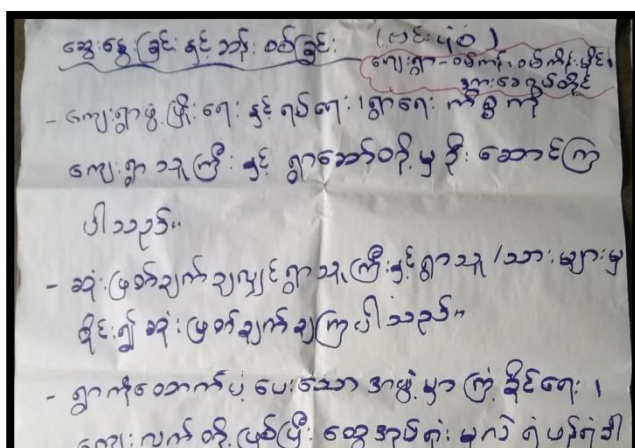 ဆွေးနွေးခြင်းနှင့်ဘန်းစပ်ခြင်း (လင်းပုံစံ)
ကျေးရွာ - ဝမ်ကန်၊ ဝမ်ကိန်းမှိုင်၊
အကူးခေးရွယ်တိုင်
- ကျေးရွာဖွံ့ဖြိုးရေးနှင့်ရပ်ရေး၊ရွာရေးကိစ္စကို
ကျေးရွာသူကြီးနှင့် ရွာဆော်တို့မှဦးဆောင်ကြ
ပါသည်။
- ဆုံးဖြတ်ချက်ချလျှင်ရွာသူကြီးနှင့်ရွာသူ/သားများမှ
ဝိုင်း၍ဆုံးဖြတ်ချက်ချကြပါသည်။
- ရွာကိုထောက်ပံ့ပေးသောအဖွဲ့မှာကြံ့ခိုင်ရေး၊
ကျေးလက်တို့ဖြစ်ပြီး